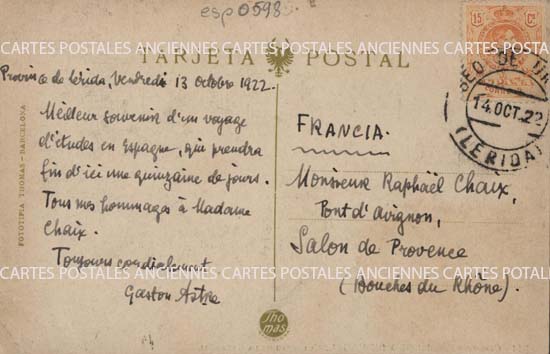 esp0598
TARJETA POSTAL
15 Cs
SEO DE UR
14 OCT. 22
(LERIDA)
Province de Lérida, Vendredi 13 octobre 1922.
Meilleur souvenir d'un voyage
d'études en Espagne, qui prendra
fin d'ici une quinzaine de jours.
Tous mes hommages à Madame
Chaix.
Toujours cordialement
Gaston Astre
FRANCIA.
Monsieur Raphaël Chaix,
Pont d'Avignon,
Salon de Provence
(Bouches du Rhône).
FOTOTIPIA THOMAS - BARCELONA
Thomas
CARTES POSTALES ANCIENNES CARTES POSTALES ANCIENNES CARTES POSTALES
CARTES POSTALES ANCIENNES CARTES POSTALES ANCIENNES CARTES POSTALES